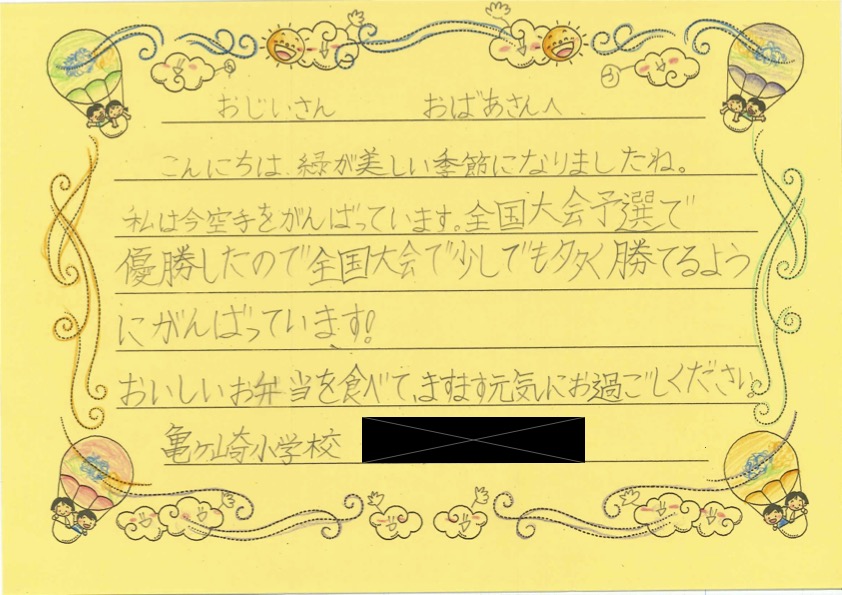 おじいさん　おばあさんへ
こんにちは。緑が美しい季節になりましたね。
私は今空手をがんばっています。全国大会予選で
優勝したので全国大会で少しでも多く勝てるよう
にがんばっています!
おいしいお弁当を食べて、ますます元気にお過ごしください。
亀ヶ崎小学校